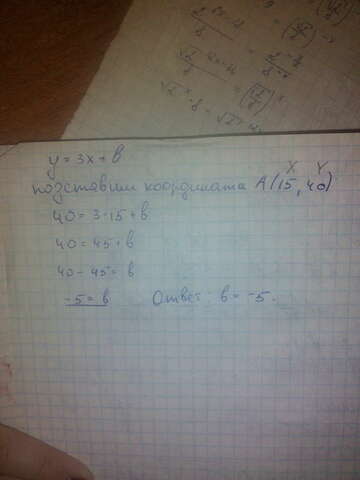 y = 3x + b
X Y
подставим координата A(15, 40)
40 = 3·15 + b
40 = 45 + b
40 - 45 = b
-5 = b Ответ: b = -5.